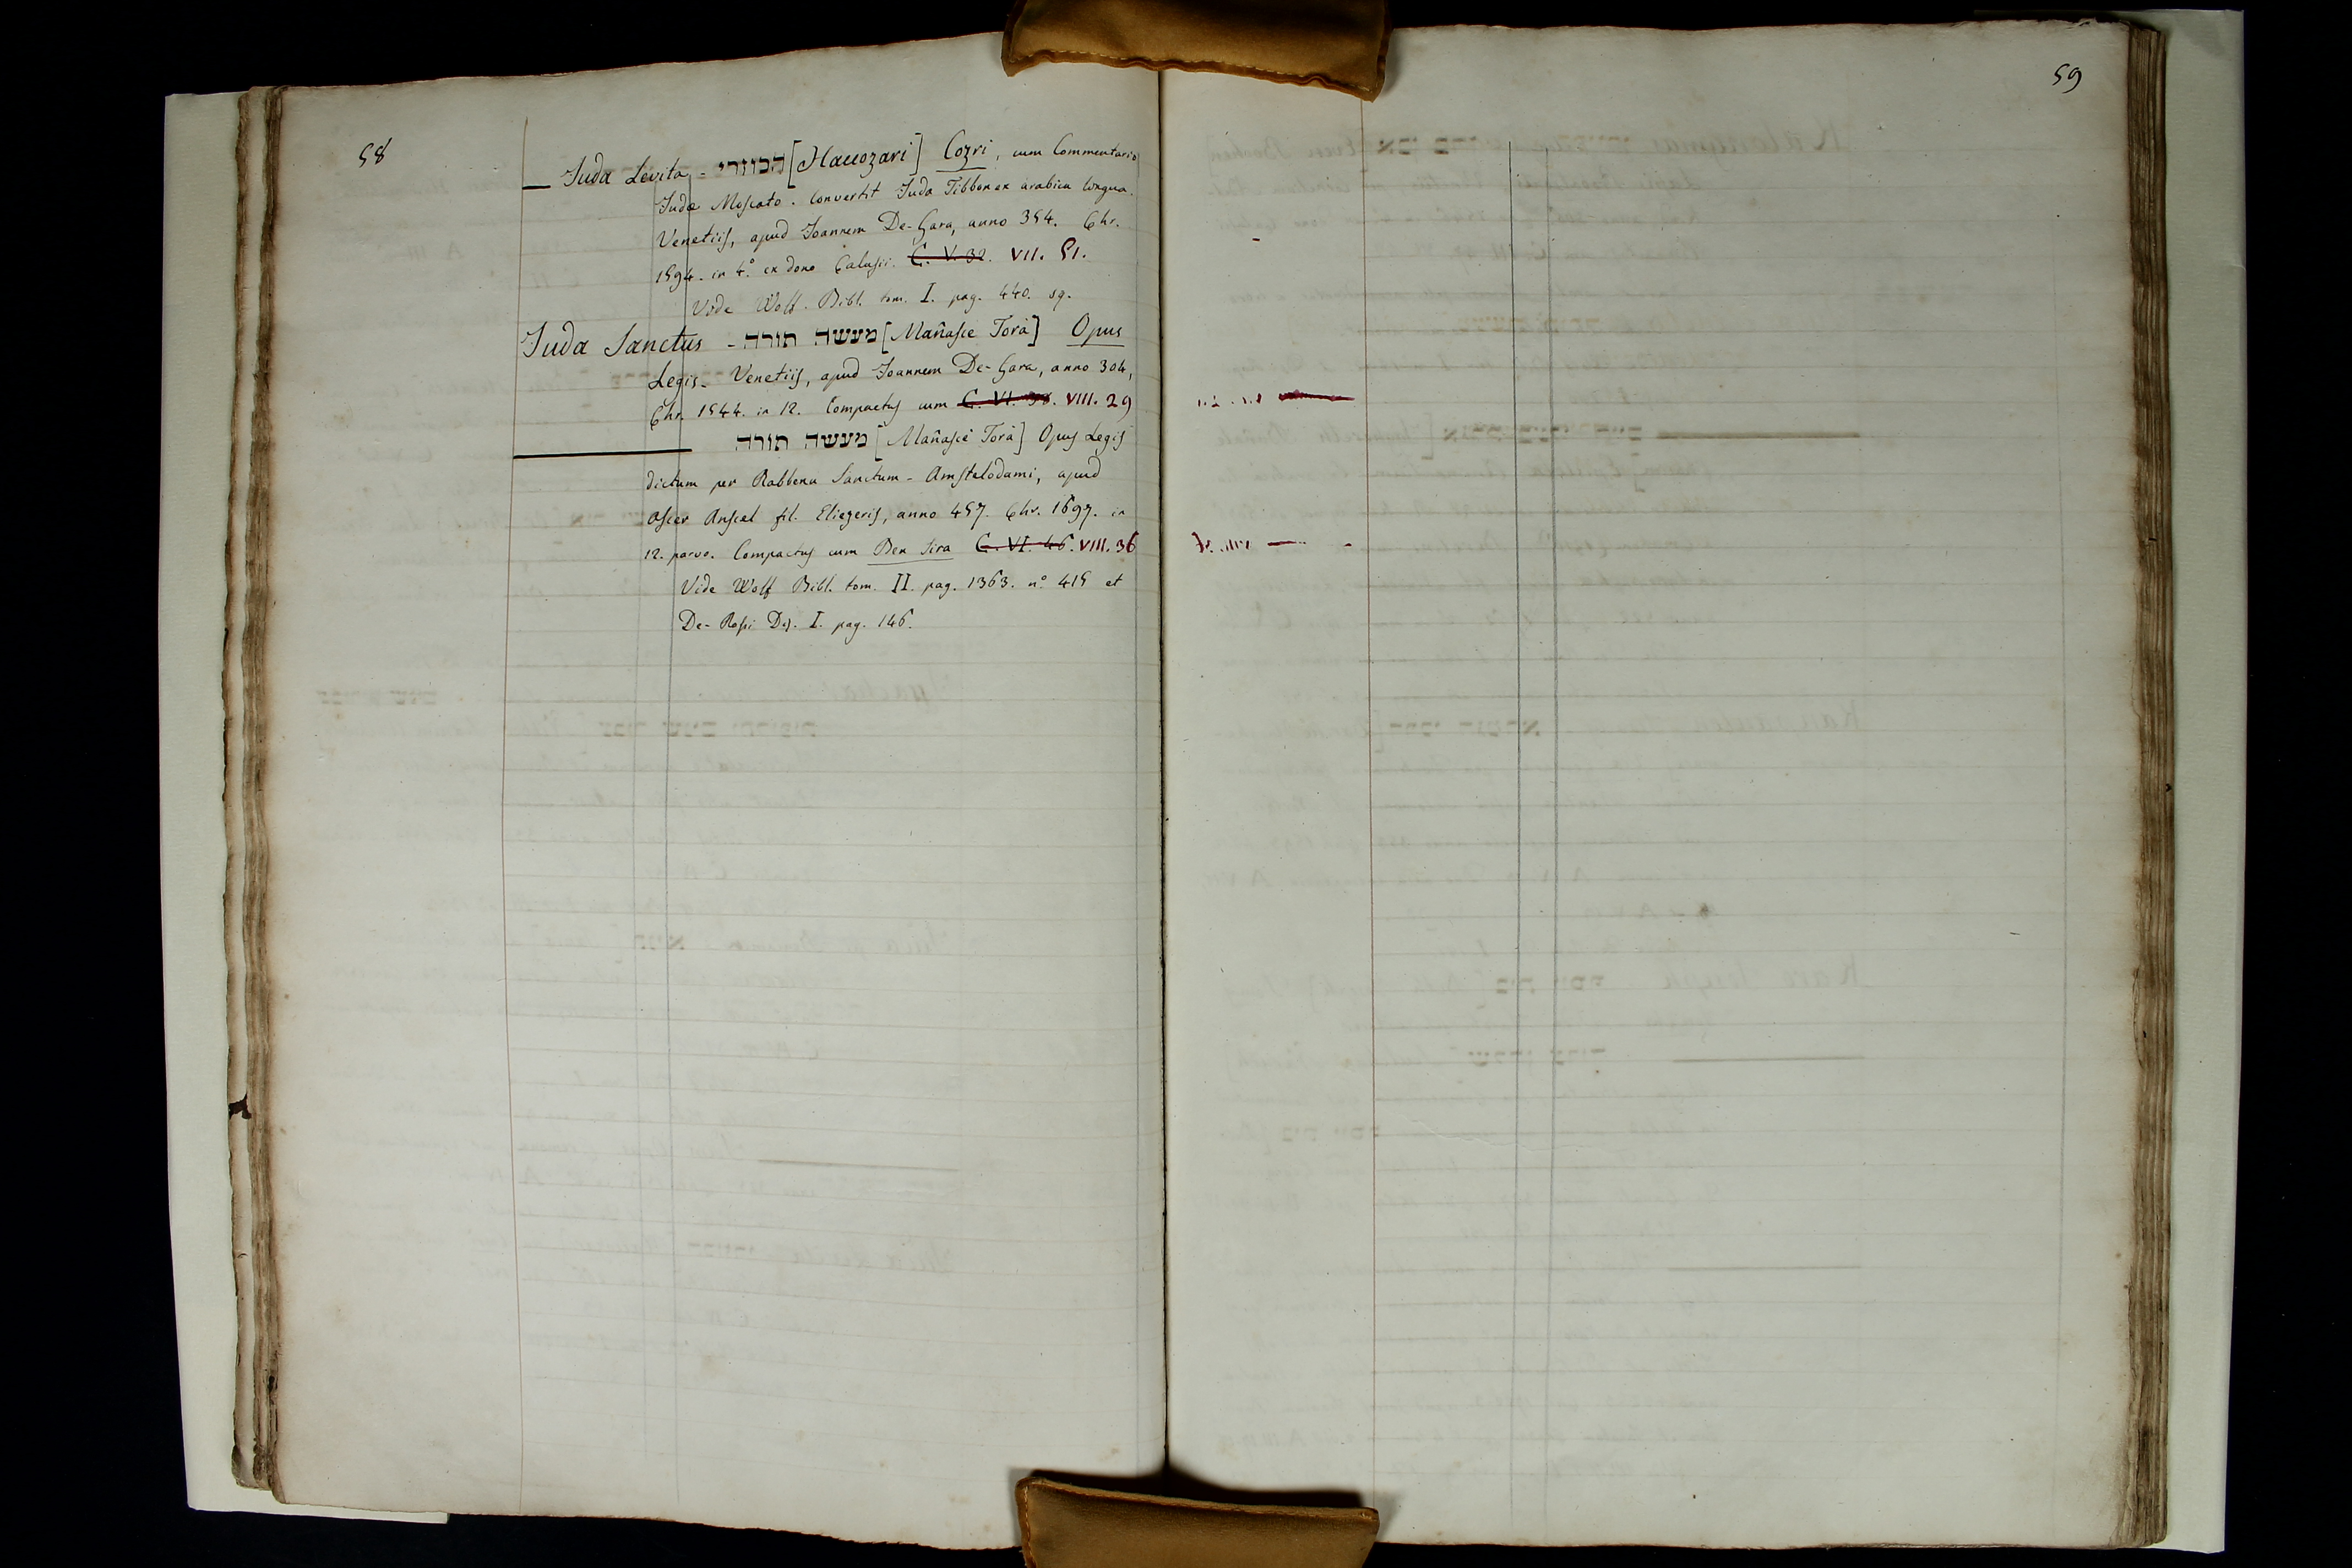 58
— Juda Levita - הכוזרי [Haccozari] Cozri, cum Commentario
Judæ Moscato. Convertit Juda Tibbon ex arabica lingua.
Venetiis, apud Joannem De-Gara, anno 354. Chr.
1594. in 4.° ex dono Calusii. C. V. 32. VII. 51.
Vide Wolf. Bibl. tom. I. pag. 440. sq.
Juda Sanctus - מעשה תורה [Mañasce Torà] Opus
Legis. Venetiis, apud Joannem De-Gara, anno 304,
Chr. 1544. in 12. Compactus cum C. VI. 38. VIII. 29
מעשה תורה [Mañascè Torà] Opus Legis
dictum per Rabbenu Sanctum - Amstelodami, apud
Ascer Anscel fil. Eliezeris, anno 457. Chr. 1697. in
12. parvo. Compactus cum Ben Sira C. VI. 46. VIII. 36
Vide Wolf Bibl. tom. II. pag. 1363. n.° 415 et
De-Rossi Diz. I. pag. 146.
59